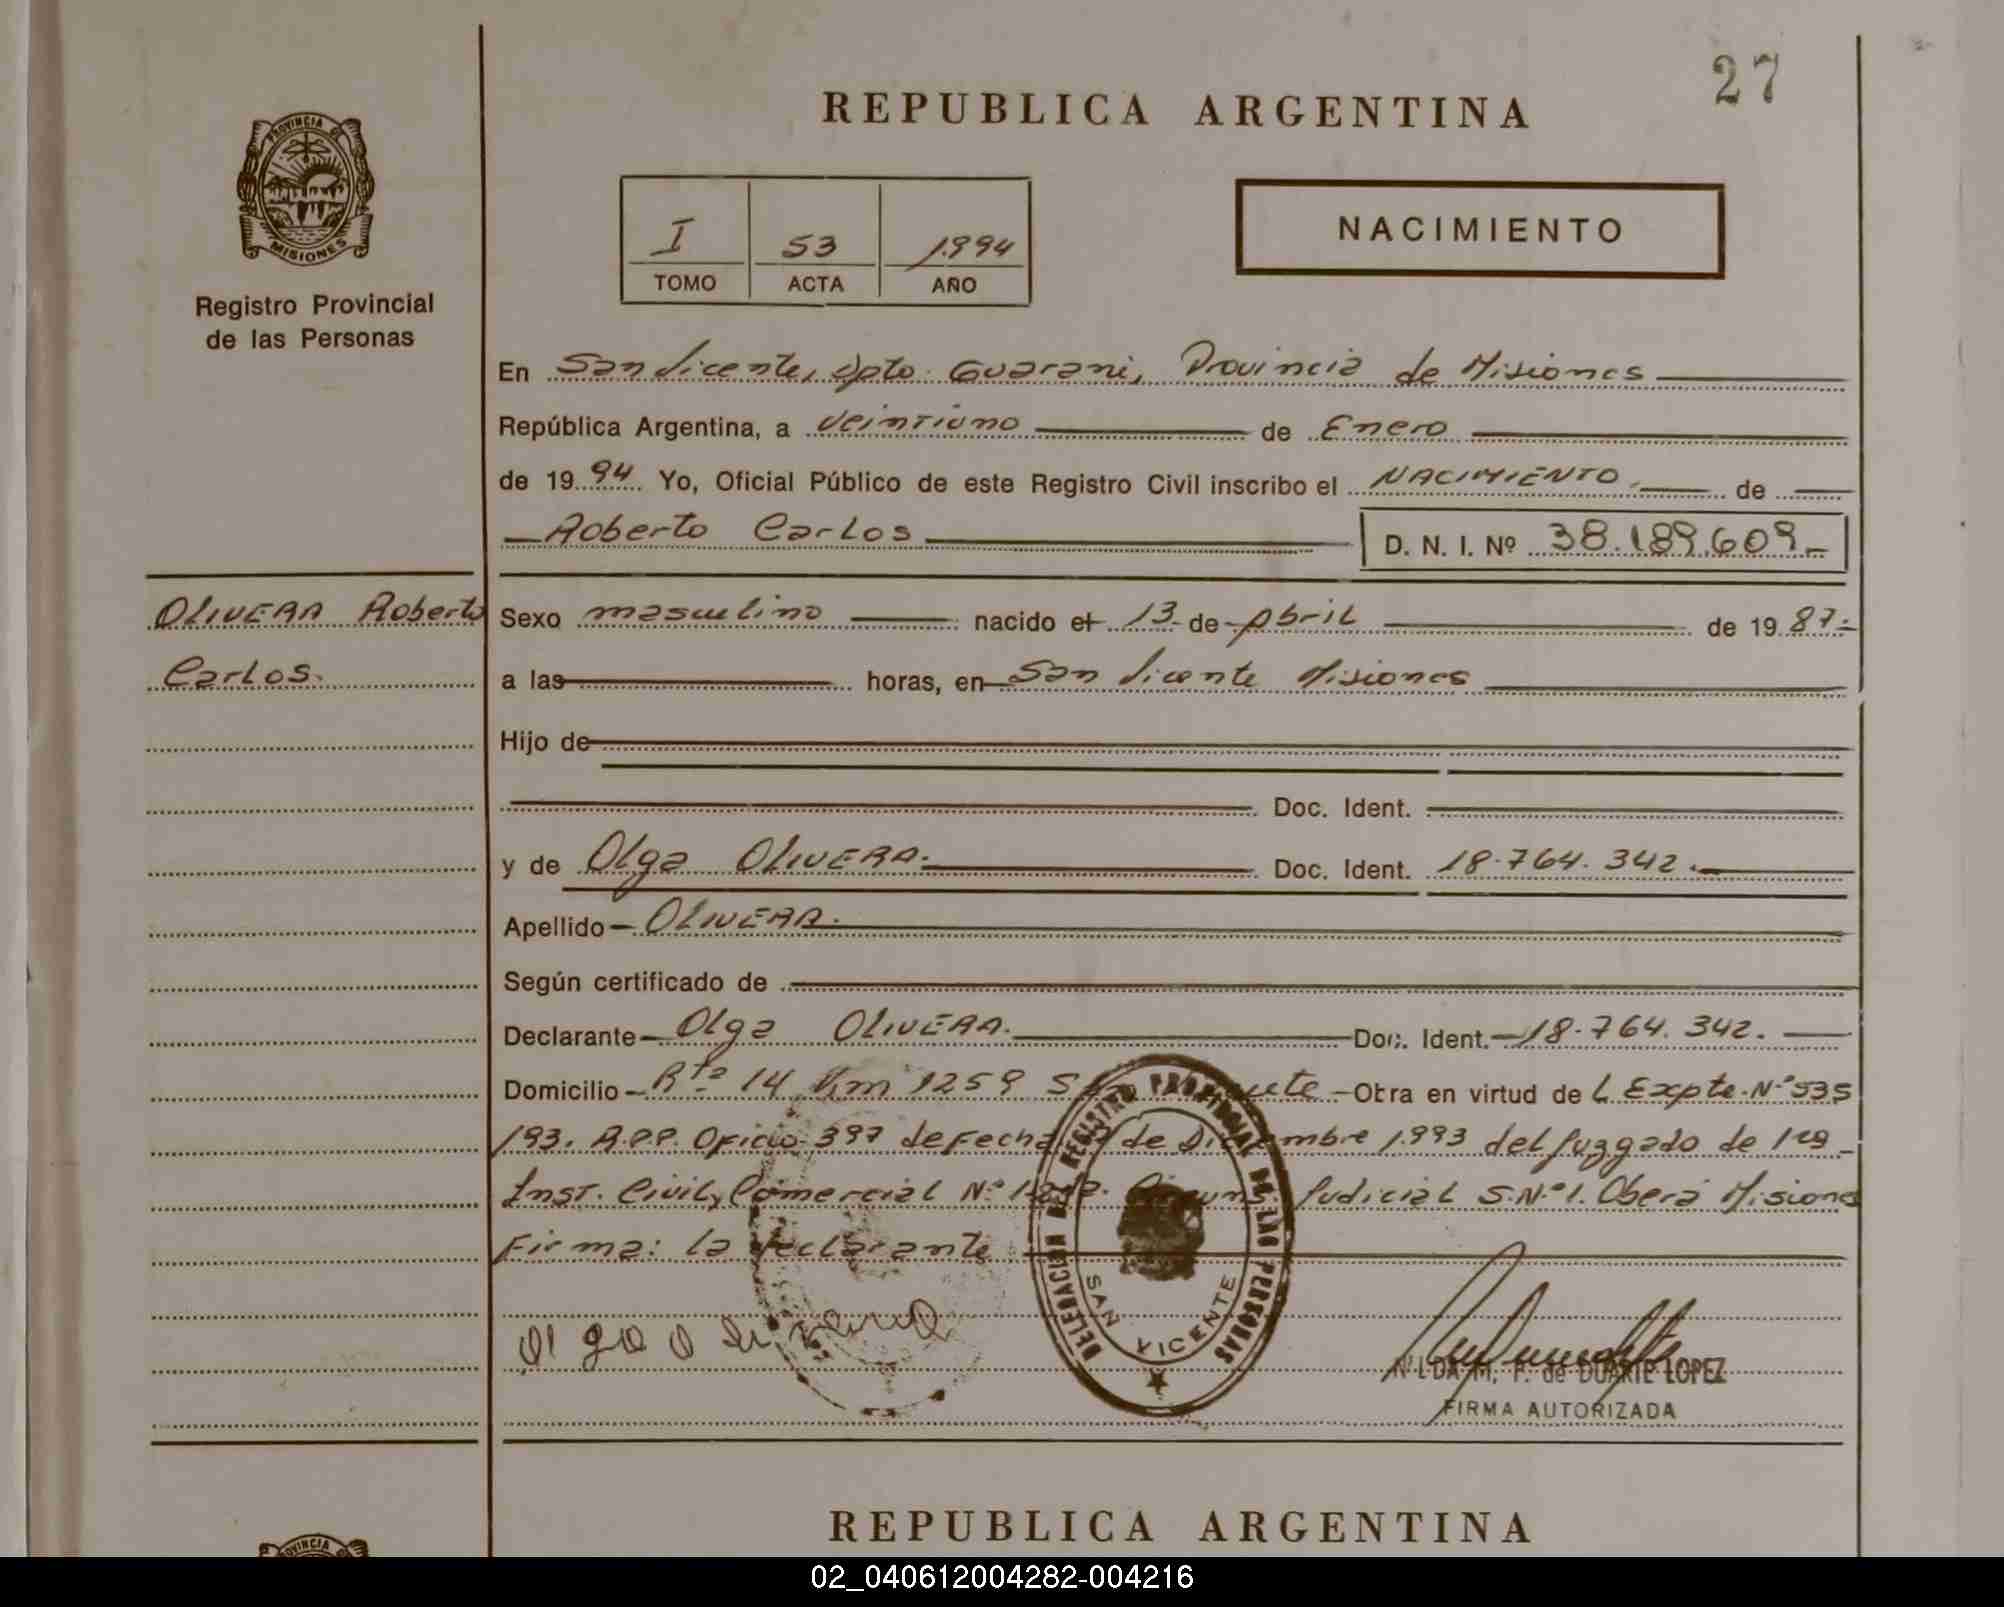 27
REPUBLICA ARGENTINA
PROVINCIA DE
MISIONES
Registro Provincial
de las Personas
I 53 1.994
TOMO ACTA AÑO
NACIMIENTO
En San Vicente, Dpto Guarani, Provincia de Misiones
República Argentina, a veintiuno de Enero
de 19 94 Yo, Oficial Público de este Registro Civil inscribo el NACIMIENTO de
Roberto Carlos D. N. I. Nº 38.189.609.-
OLIVERA Roberto
Carlos.
Sexo masculino nacido el 13 de Abril de 19 87.-
a las horas, en San Vicente Misiones
Hijo de
Doc. Ident.
y de Olga OLIVERA.- Doc. Ident. 18.764.342.-
Apellido OLIVERA.
Según certificado de
Declarante Olga OLIVERA. Doc. Ident. 18.764.342.
Domicilio Rta 14 Km 1259 San Otra en virtud de L Expte. Nº 535
193. R.P.P. Oficio 397 de Fecha de Diciembre 1.993 del Juzgado de 1ra
Inst. Civil y Comercial Nº Judicial S.Nº1. Oberá Misiones
Firma: la declarante
DELEGACION DEL REGISTRO PROVINCIAL DE LAS PERSONAS
SAN VICENTE
M. F. de DUARTE LOPEZ
FIRMA AUTORIZADA
REPUBLICA ARGENTINA
02_040612004282-004216